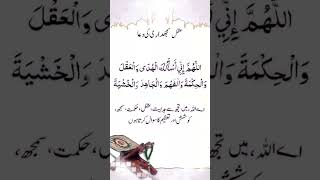 عقل سمجھداری کی دعا
اللّٰهُمَّ إِنِّي أَسْأَلُكَ الْهُدَى وَالْعَقْلَ
وَالْحِكْمَةَ وَالْفَهْمَ وَالْجَاهِدَ وَالْخَشْيَةَ
اے اللہ، میں تجھ سے ہدایت، عقل، حکمت، سمجھ،
کوشش اور تعظیم کا سوال کرتا ہوں